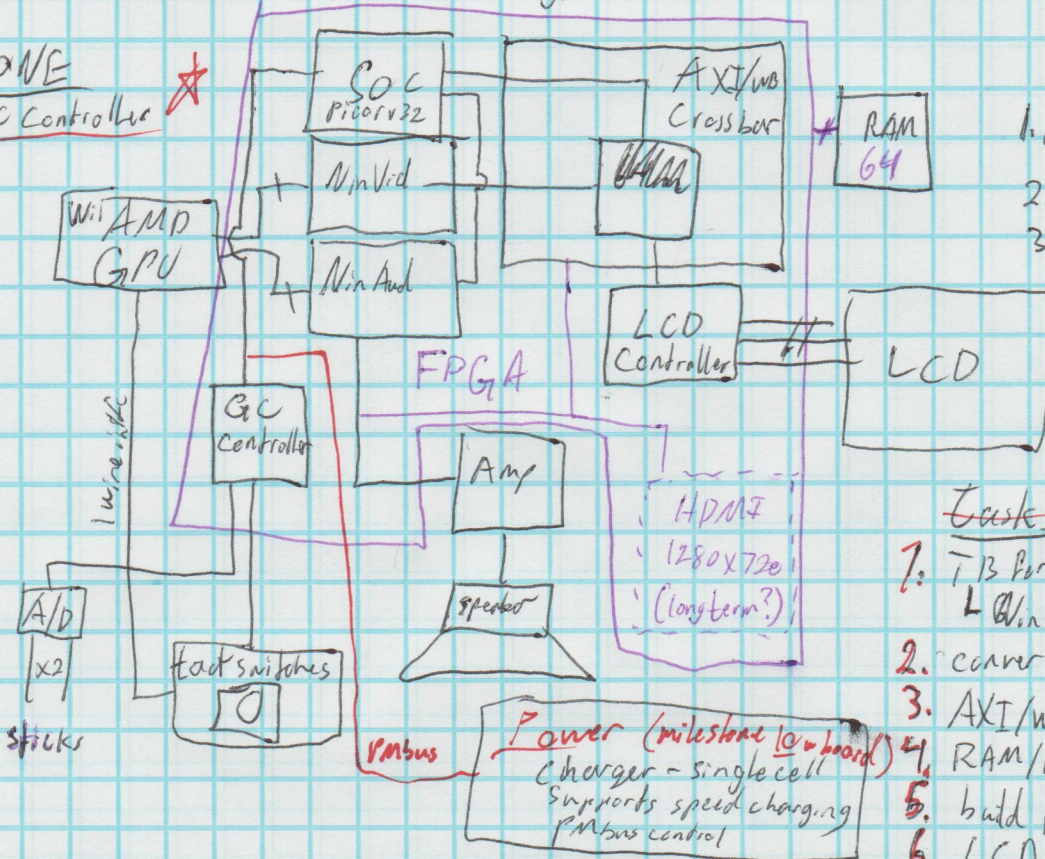 ONE
C Controller
SOC
Picorv32
AXI/WB
Crossbar
RAM
64
NinVid
Wii AMD
GPU
NinAud
LCD
Controller
LCD
FPGA
GC
Controller
Amp
HDMI
1280x720
(longterm?)
1wire
A/D
x2
sticks
speaker
tact switches
PMbus
Power (milestone
board)
Charger - single cell
Supports speed charging
PMbus control
1.
2
3
task
1. TB for
2. conver
3. AXI/W
4. RAM/
5. build
6. LCD